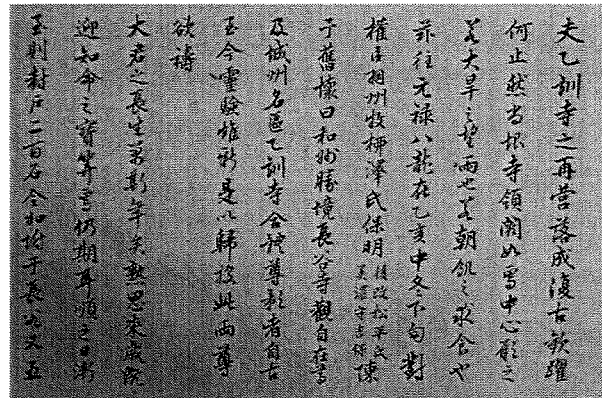 夫乙訓寺之再営落成復古歓躍
何止然当恨寺領闕如焉中心願之
若大旱之望雨也若朝飢之求食也
茲往元禄八龍在乙亥中冬下旬対
権臣相州牧柳澤氏保明後改松平氏美濃守吉保陳
于舊懐曰和州勝境長谷寺観自在尊
及城州名區乙訓寺合体尊影者自古
至今霊験雄新是以歸投此両尊
欲祷
大君之長生若斯年矣熟思来歳既
迎知命之寶算言仍期耳順之日漸
至則封戸二百石今加附于長九又五